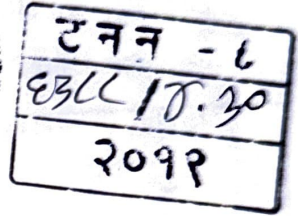 टनन - ८
६३८८ / ४.३०
२०१९